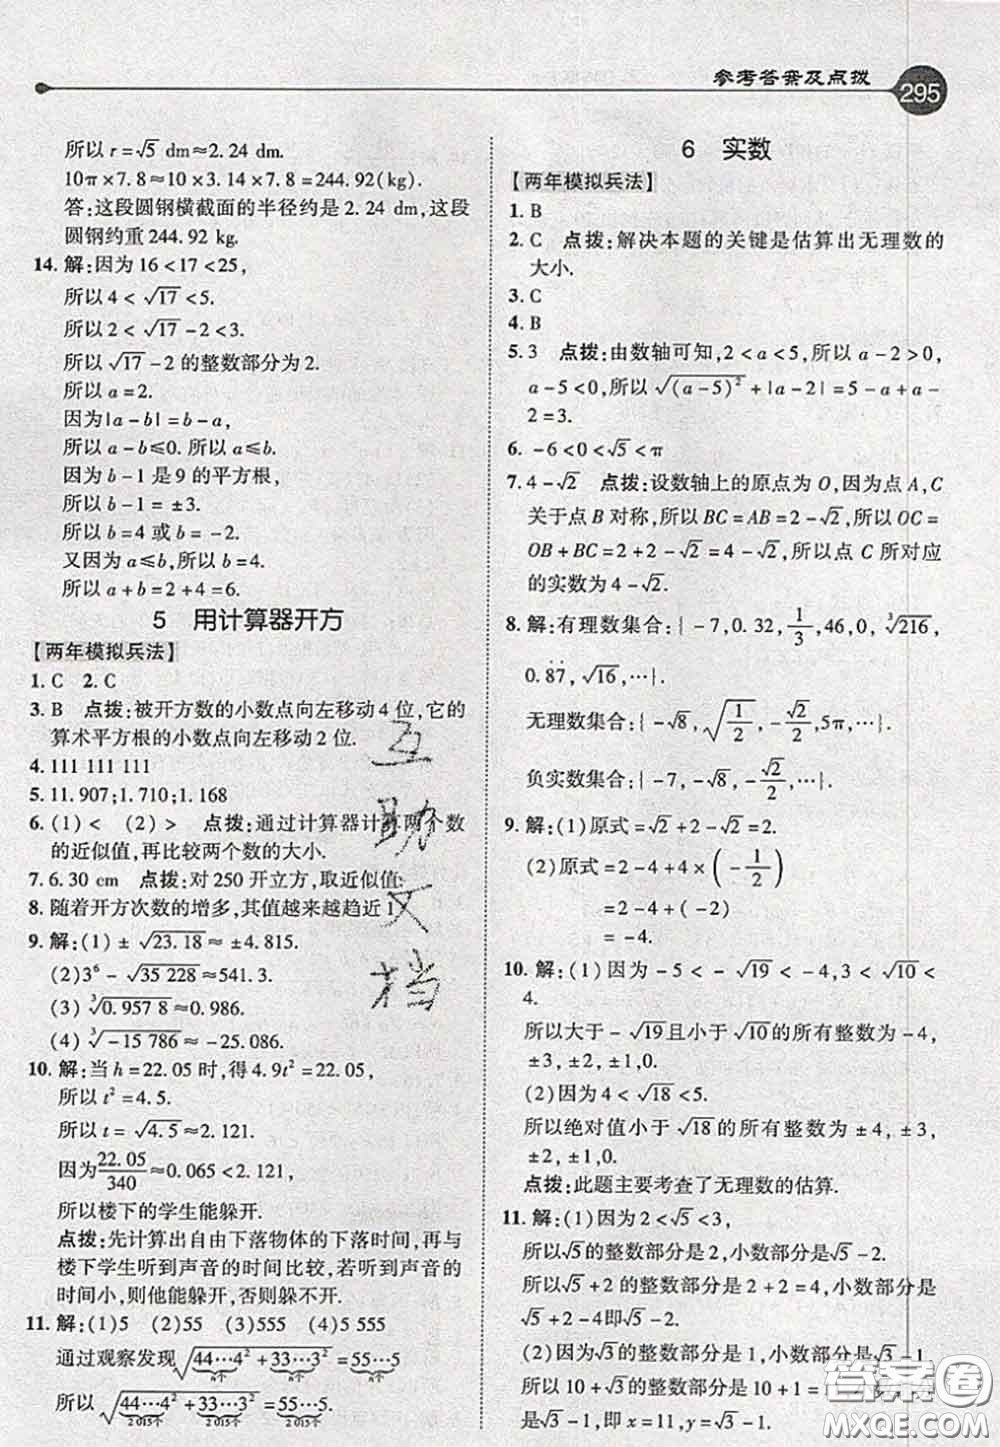 参考答案及点拨
295
所以 r=√5 dm≈2.24 dm.
10π×7.8≈10×3.14×7.8=244.92(kg).
答:这段圆钢横截面的半径约是2.24 dm,这段
圆钢约重244.92 kg.
14. 解:因为16<17<25,
所以4<√17<5.
所以2<√17-2<3.
所以√17-2的整数部分为2.
所以 a=2.
因为|a-b|=b-a,
所以 a-b≤0. 所以 a≤b.
因为 b-1是9的平方根,
所以 b-1=±3.
所以 b=4 或 b=-2.
又因为 a≤b,所以 b=4.
所以 a+b=2+4=6.
5 用计算器开方
【两年模拟兵法】
1. C 2. C
3. B 点拨:被开方数的小数点向左移动4位,它的
算术平方根的小数点向左移动2位.
4. 111 111 111
5. 11.907;1.710;1.168
6. (1)< (2)> 点拨:通过计算器计算两个数
的近似值,再比较两个数的大小.
7. 6.30 cm 点拨:对250开立方,取近似值.
8. 随着开方次数的增多,其值越来越趋近1.
9. 解:(1)±√23.18≈±4.815.
(2)3⁶-√35 228≈541.3.
(3)³√0.957 8≈0.986.
(4)³√-15 786≈-25.086.
10. 解:当 h=22.05时,得4.9t²=22.05,
所以 t²=4.5.
所以 t=√4.5≈2.121.
因为22.05/340≈0.065<2.121,
所以楼下的学生能躲开.
点拨:先计算出自由下落物体的下落时间,再与
楼下学生听到声音的时间比较,若听到声音的
时间小,则他能躲开,否则不能躲开.
11. 解:(1)5 (2)55 (3)555 (4)5 555
通过观察发现√(44…4²+33…3²)=55…5
n个 n个 n个
所以√(44…4²+33…3²)=55…5.
2 015个 2 015个 2 015个
6 实数
【两年模拟兵法】
1. B
2. C 点拨:解决本题的关键是估算出无理数的
大小.
3. C
4. B
5. 3 点拨:由数轴可知,2<a<5,所以 a-2>0,
a-5<0,所以√(a-5)²+|a-2|=5-a+a-
2=3.
6. -6<0<√5<π
7. 4-√2 点拨:设数轴上的原点为O,因为点A,C
关于点B对称,所以BC=AB=2-√2,所以OC=
OB+BC=2+2-√2=4-√2,所以点C所对应
的实数为4-√2.
8. 解:有理数集合:{-7,0.32,1/3,46,0,³√216,
0.8̇7̇,√16,…}.
无理数集合:{-√8,√(1/2),-√2/2,5π,…}.
负实数集合:{-7,-√8,-√2/2,…}.
9. 解:(1)原式=√2+2-√2=2.
(2)原式=2-4+4×(-1/2)
=2-4+(-2)
=-4.
10. 解:(1)因为-5<-√19<-4,3<√10<
4.
所以大于-√19且小于√10的所有整数为-4,
±3,±2,±1,0.
(2)因为4<√18<5.
所以绝对值小于√18的所有整数为±4,±3,
±2,±1,0.
点拨:此题主要考查了无理数的估算.
11. 解:(1)因为2<√5<3,
所以√5的整数部分是2,小数部分是√5-2.
所以√5+2的整数部分是2+2=4,小数部分是
√5+2-4即√5-2.
(2)因为√3的整数部分是1,小数部分是√3-1,
所以10+√3的整数部分是10+1=11,小数部分
是√3-1,即 x=11,y=√3-1.
互
助
文
档
答案圈
MXQE.COM